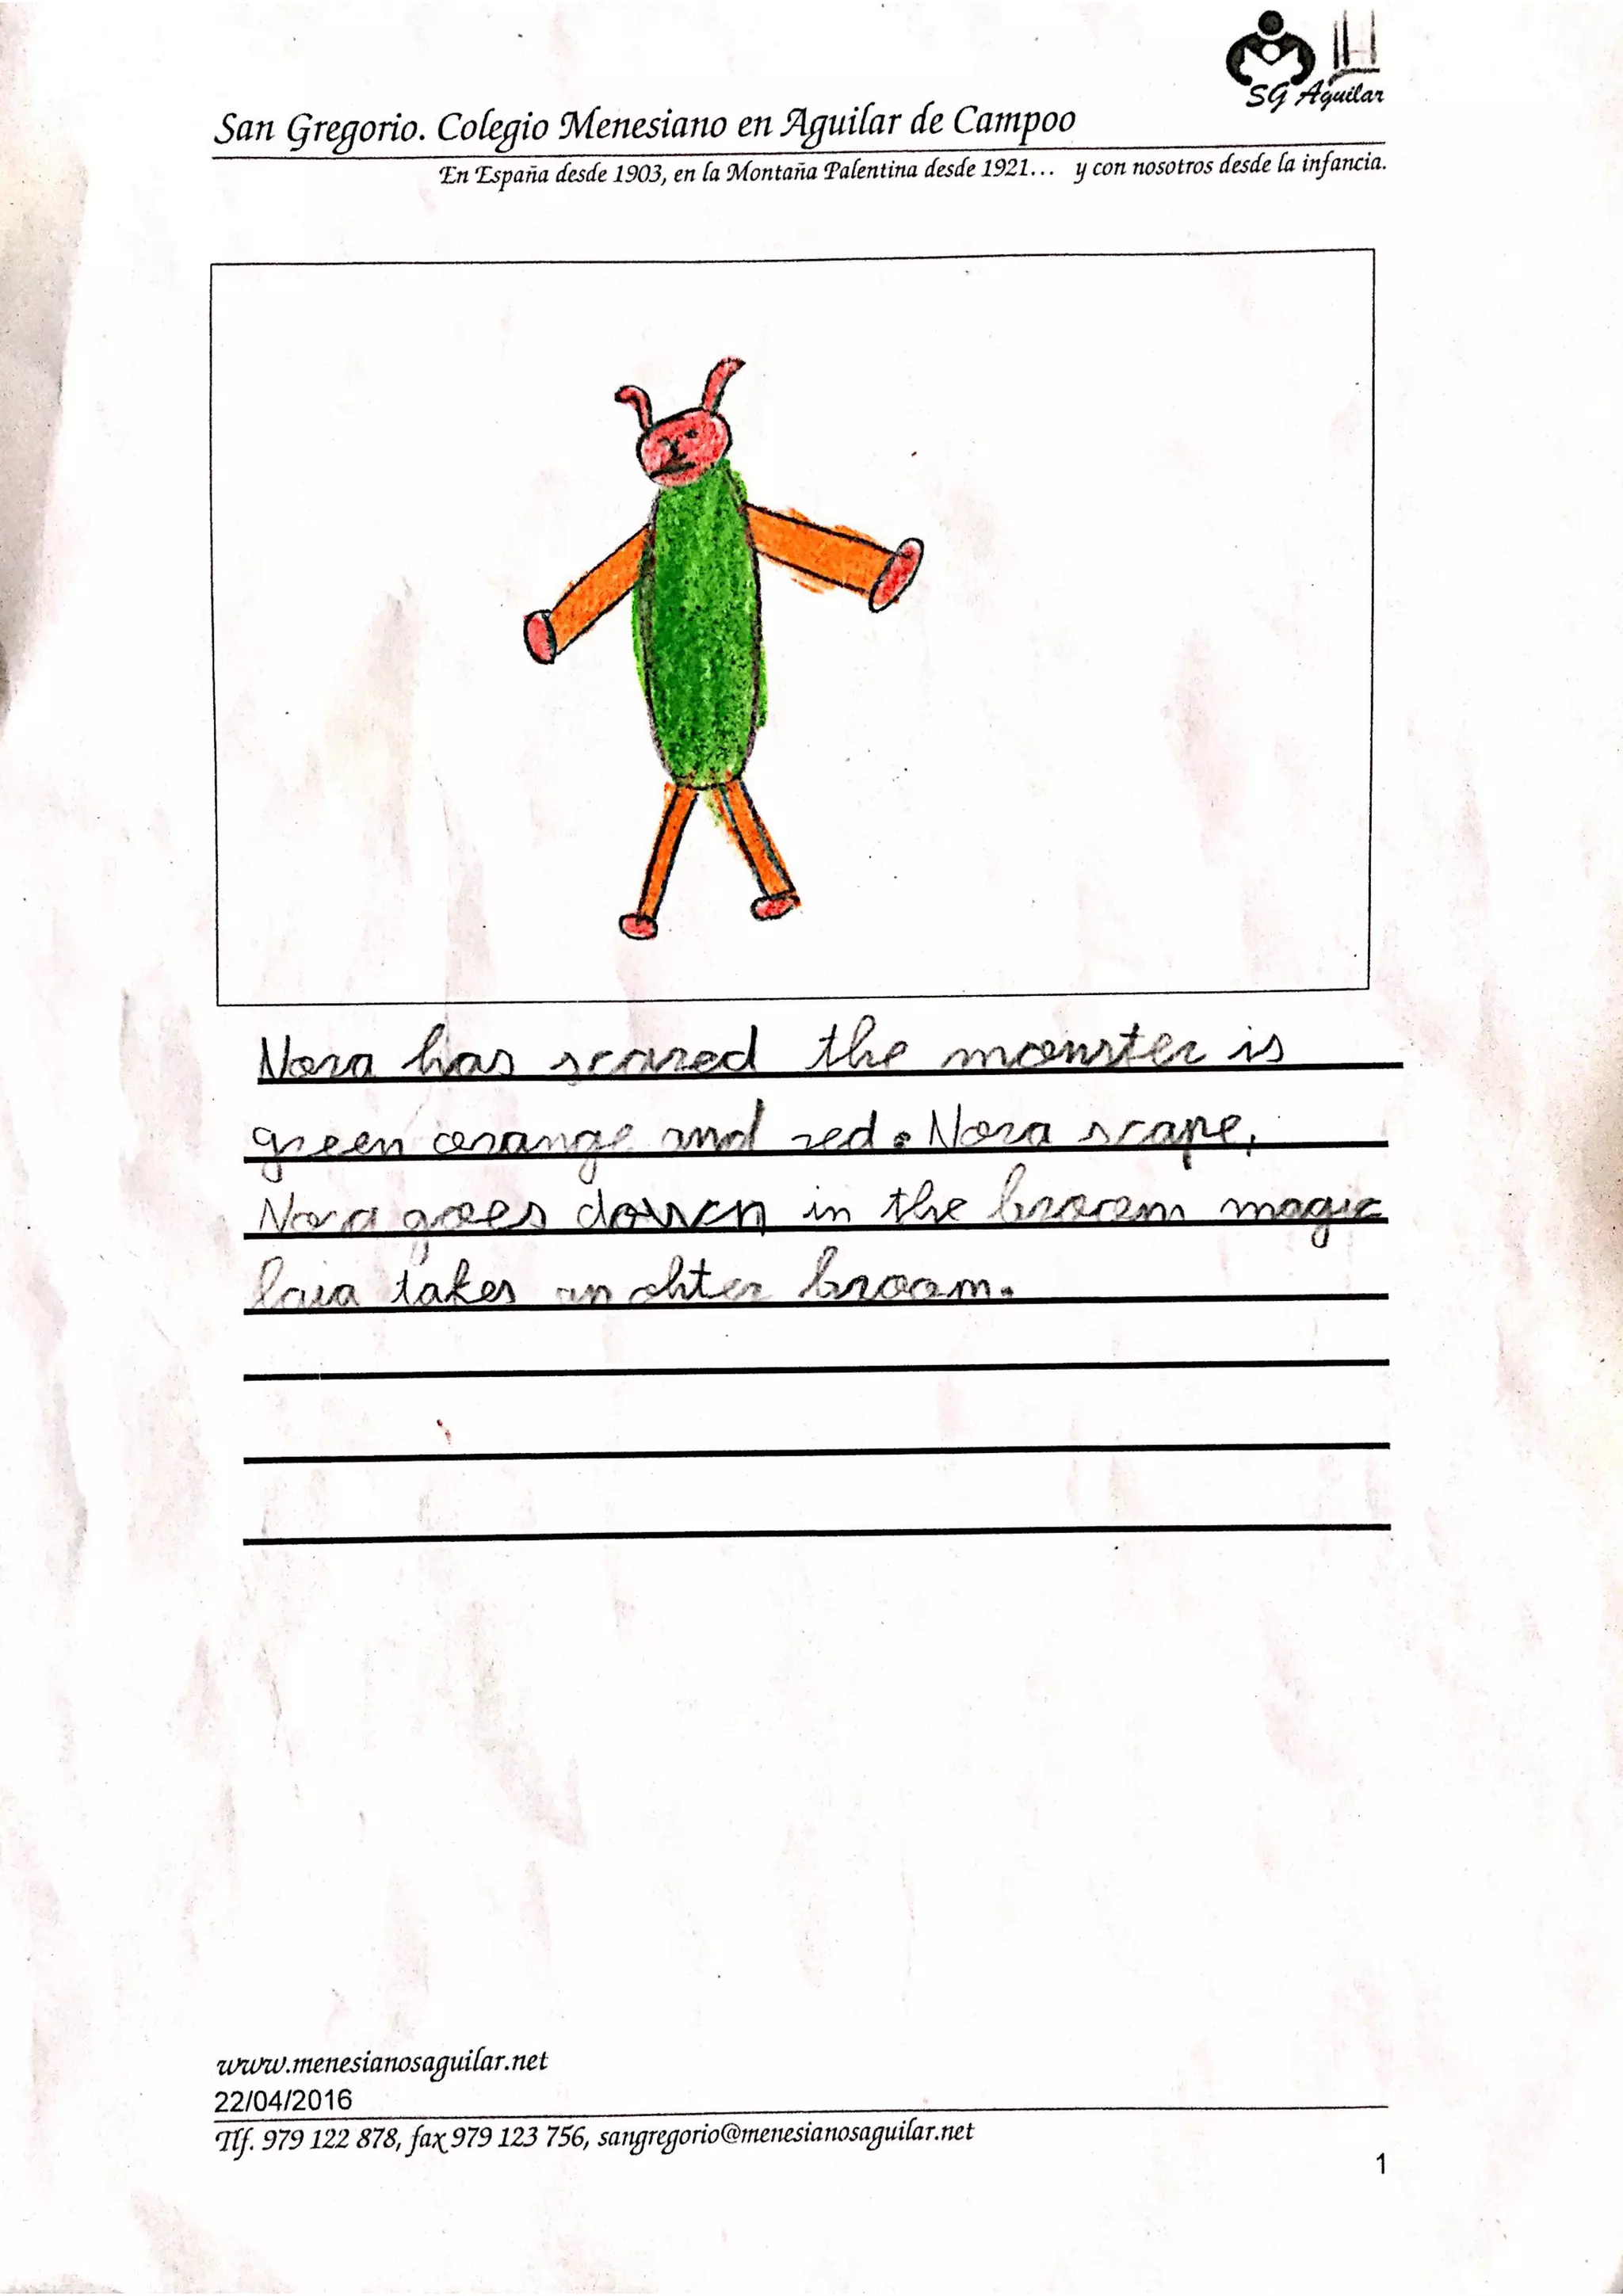 SG Aguilar
San Gregorio. Colegio Menesiano en Aguilar de Campoo
En España desde 1903, en la Montaña Palentina desde 1921... y con nosotros desde la infancia.
Nora has scared the monster is
green orange and red. Nora scape,
Nora goes down in the broom magic
laia takes an ohter broom.
www.menesianosaguilar.net
22/04/2016
Tlf. 979 122 878, fax 979 123 756, sangregorio@menesianosaguilar.net
1